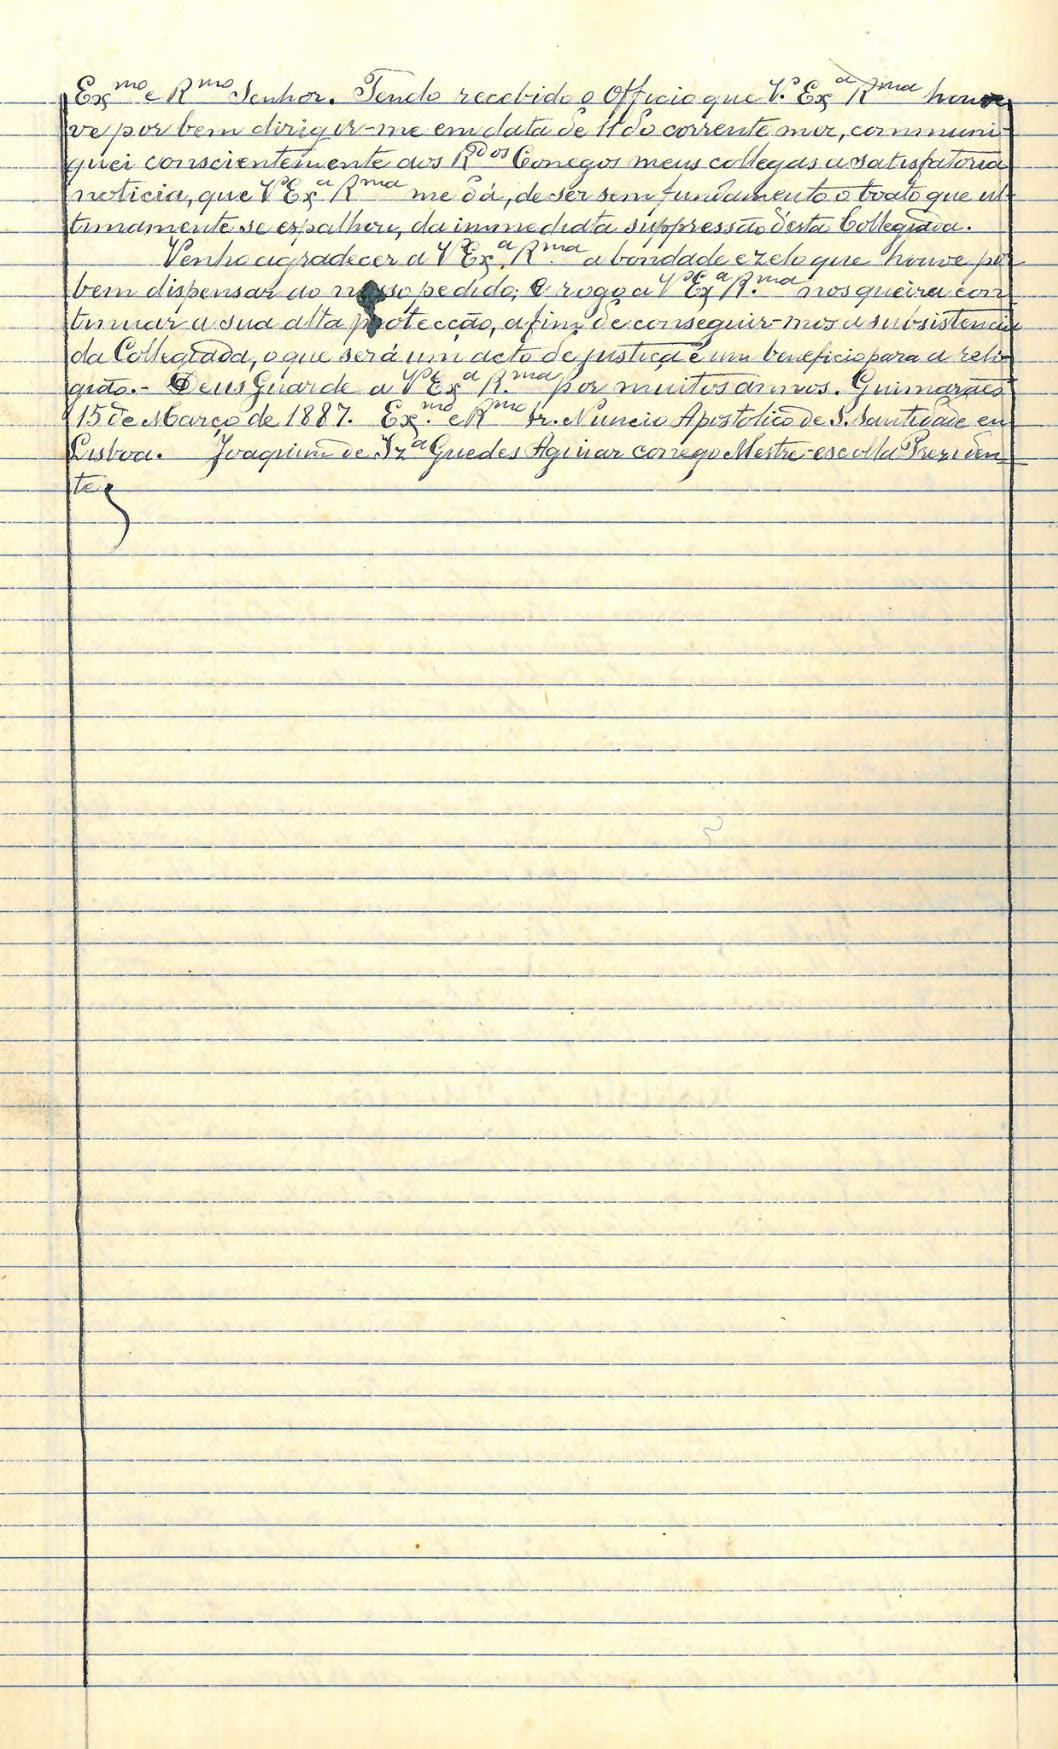 Ex.mo e R.mo Senhor. Tendo recebido o Officio que V.ª Ex.ª R.ma houve
ve por bem dirigir-me em data de 11 do corrente mez, communi-
quei conscientemente aos R.dos Conegos meus collegas a satisfatoria
noticia, que V.ª Ex.ª R.ma me dá, de ser sem fundamento o boato que ul-
timamente se espalhou, da immediata suppressão d'esta Collegiada.
Venho agradecer a V.ª Ex.ª R.ma a bondade e zelo que houve por
bem dispensar ao nosso pedido, e rogo a V.ª Ex.ª R.ma nos queira con
tinuar a sua alta protecção, a fim de conseguir-mos a subsistencia
da Collegiada, o que será um acto de justiça e um beneficio para a reli-
gião. - Deus Guarde a V.ª Ex.ª R.ma por muitos annos. Guimarães
15 de Março de 1887. Ex.mo e R.mo Sr. Nuncio Apostolico de S. Santidade em
Lisboa. Joaquim de Guedes Aguiar conego Mestre-escolla Prezidem
te